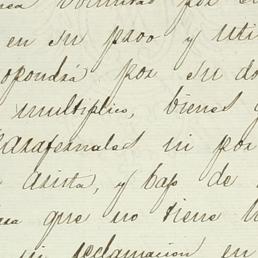 voluntad por
en su pro y uti
opondrá por su do
multiplico, bienes
parafernales ni por
asista, y bajo de
que no tiene
reclamacion en